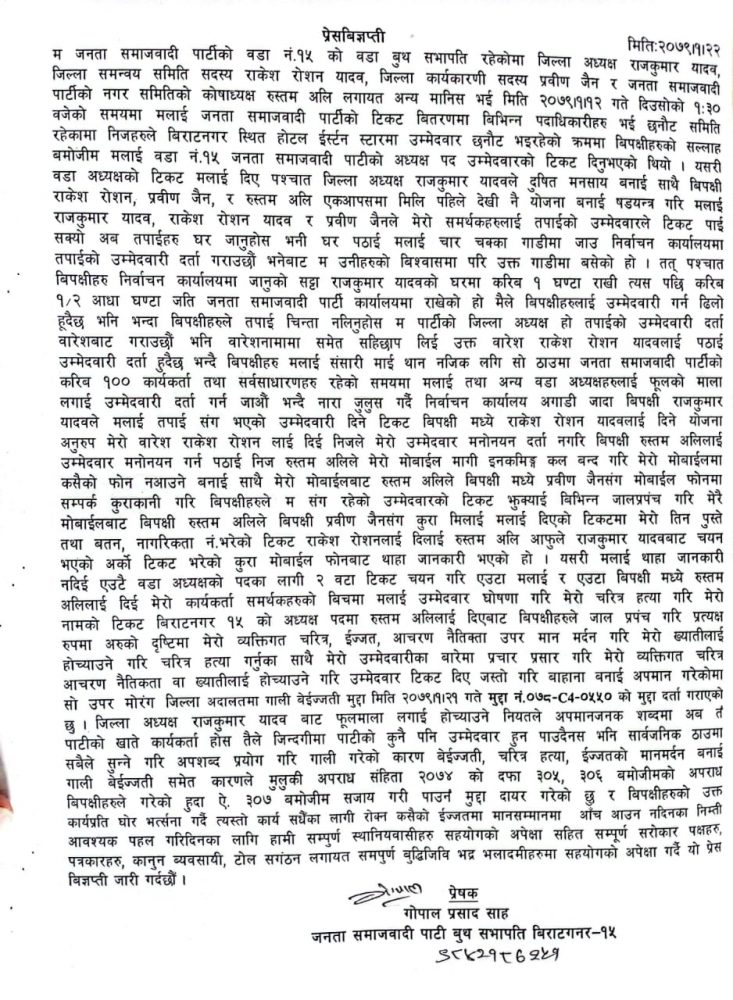 प्रेसबिज्ञप्ती
मिति:२०७९।१।२२
म जनता समाजवादी पार्टीको वडा नं.१५ को वडा बुथ सभापति रहेकोमा जिल्ला अध्यक्ष राजकुमार यादव,
जिल्ला समन्वय समिति सदस्य राकेश रोशन यादव, जिल्ला कार्यकारणी सदस्य प्रवीण जैन र जनता समाजवादी
पार्टीको नगर समितिको कोषाध्यक्ष रुस्तम अलि लगायत अन्य मानिस भई मिति २०७९।१।१२ गते दिउसोको १:३०
वजेको समयमा मलाई जनता समाजवादी पार्टीको टिकट बितरणमा बिभिन्न पदाधिकारीहरु भई छनौट समिति
रहेकामा निजहरुले बिराटनगर स्थित होटल ईर्स्टन स्टारमा उम्मेदवार छनौट भइरहेको क्रममा बिपक्षीहरुको सल्लाह
बमोजीम मलाई वडा नं.१५ जनता समाजवादी पाटीको अध्यक्ष पद उम्मेदवारको टिकट दिनुभएको थियो । यसरी
वडा अध्यक्षको टिकट मलाई दिए पश्चात जिल्ला अध्यक्ष राजकुमार यादवले दुषित मनसाय बनाई साथै बिपक्षी
राकेश रोशन, प्रवीण जैन, र रुस्तम अलि एकआपसमा मिलि पहिले देखी नै योजना बनाई षडयन्त्र गरि मलाई
राजकुमार यादव, राकेश रोशन यादव र प्रवीण जैनले मेरो समर्थकहरुलाई तपाईको उम्मेदवारले टिकट पाई
सक्यो अब तपाईहरु घर जानुहोस भनी घर पठाई मलाई चार चक्का गाडीमा जाउ निर्वाचन कार्यालयमा
तपाईको उम्मेदवारी दर्ता गराउछौं भनेबाट म उनीहरुको बिश्वासमा परि उक्त गाडीमा बसेको हो । तत् पश्चात
बिपक्षीहरु निर्वाचन कार्यालयमा जानुको सट्टा राजकुमार यादवको घरमा करिब १ घण्टा राखी त्यस पछि करिब
१/२ आधा घण्टा जति जनता समाजवादी पार्टी कार्यालयमा राखेको हो मैले बिपक्षीहरुलाई उम्मेदवारी गर्न ढिलो
हूदैछ भनि भन्दा बिपक्षीहरुले तपाई चिन्ता नलिनुहोस म पार्टीको जिल्ला अध्यक्ष हो तपाईको उम्मेदवारी दर्ता
वारेशबाट गराउछौं भनि वारेशनामामा समेत सहिछाप लिई उक्त वारेश राकेश रोशन यादवलाई पठाई
उम्मेदवारी दर्ता हुदैछ भन्दै बिपक्षीहरु मलाई संसारी माई थान नजिक लगि सो ठाउमा जनता समाजवादी पार्टीको
करिब १०० कार्यकर्ता तथा सर्वसाधारणहरु रहेको समयमा मलाई तथा अन्य वडा अध्यक्षहरुलाई फूलको माला
लगाई उम्मेदवारी दर्ता गर्न जाऔं भन्दै नारा जुलुस गर्दै निर्वाचन कार्यालय अगाडी जादा बिपक्षी राजकुमार
यादवले मलाई तपाई संग भएको उम्मेदवारी दिने टिकट बिपक्षी मध्ये राकेश रोशन यादवलाई दिने योजना
अनुरुप मेरो बारेश राकेश रोशन लाई दिई निजले मेरो उम्मेदवार मनोनयन दर्ता नगरि बिपक्षी रुस्तम अलिलाई
उम्मेदवार मनोनयन गर्न पठाई निज रुस्तम अलिले मेरो मोबाईल मागी इनकमिङ्ग कल बन्द गरि मेरो मोबाईलमा
कसैको फोन नआउने बनाई साथै मेरो मोबाईलबाट रुस्तम अलिले बिपक्षी मध्ये प्रवीण जैनसंग मोबाईल फोनमा
सम्पर्क कुराकानी गरि बिपक्षीहरुले म संग रहेको उम्मेदवारको टिकट भुक्याई बिभिन्न जालप्रपंच गरि मेरै
मोबाईलबाट बिपक्षी रुस्तम अलिले बिपक्षी प्रवीण जैनसंग कुरा मिलाई मलाई दिएको टिकटमा मेरो तिन पुस्ते
तथा बतन, नागरिकता नं.भरेको टिकट राकेश रोशनलाई दिलाई रुस्तम अलि आफुले राजकुमार यादवबाट चयन
भएको अर्को टिकट भरेको कुरा मोबाईल फोनबाट थाहा जानकारी भएको हो । यसरी मलाई थाहा जानकारी
नदिई एउटै वडा अध्यक्षको पदका लागी २ वटा टिकट चयन गरि एउटा मलाई र एउटा बिपक्षी मध्ये रुस्तम
अलिलाई दिई मेरो कार्यकर्ता समर्थकहरुको बिचमा मलाई उम्मेदवार घोषणा गरि मेरो चरित्र हत्या गरि मेरो
नामको टिकट बिराटनगर १५ को अध्यक्ष पदमा रुस्तम अलिलाई दिएबाट बिपक्षीहरुले जाल प्रपंच गरि प्रत्यक्ष
रुपमा अरुको दृष्टिमा मेरो व्यक्तिगत चरित्र, ईज्जत, आचरण नैतिक्ता उपर मान मर्दन गरि मेरो ख्यातीलाई
होच्याउने गरि चरित्र हत्या गर्नुका साथै मेरो उम्मेदवारीका बारेमा प्रचार प्रसार गरि मेरो व्यक्तिगत चरित्र
आचरण नैतिकता वा ख्यातीलाई होच्याउने गरि उम्मेदवार टिकट दिए जस्तो गरि बाहाना बनाई अपमान गरेकोमा
सो उपर मोरंग जिल्ला अदालतमा गाली बेईज्जती मुद्दा मिति २०७९।१।२१ गते मुद्दा नं.०७८-C4-०५५० को मुद्दा दर्ता गराएको
छु । जिल्ला अध्यक्ष राजकुमार यादव बाट फूलमाला लगाई होच्याउने नियतले अपमानजनक शब्दमा अब तँ
पाटीको खाते कार्यकर्ता होस तैले जिन्दगीमा पाटीको कुनै पनि उम्मेदवार हुन पाउदैनस भनि सार्वजनिक ठाउमा
सबैले सुन्ने गरि अपशब्द प्रयोग गरि गाली गरेको कारण बेईज्जती, चरित्र हत्या, ईज्जतको मानमर्दन बनाई
गाली बेईज्जती समेत कारणले मुलुकी अपराध संहिता २०७४ को दफा ३०५, ३०६ बमोजीमको अपराध
बिपक्षीहरुले गरेको हुदा ऐ. ३०७ बमोजीम सजाय गरी पाउनँ मुद्दा दायर गरेको छु र बिपक्षीहरुको उक्त
कार्यप्रति घोर भर्त्सना गर्दै त्यस्तो कार्य सधैंका लागी रोक्न कसैको ईज्जतमा मानसम्मानमा आँच आउन नदिनका निम्ती
आवश्यक पहल गरिदिनका लागि हामी सम्पुर्ण स्थानियवासीहरु सहयोगको अपेक्षा सहित सम्पूर्ण सरोकार पक्षहरु,
पत्रकारहरु, कानुन ब्यवसायी, टोल सगंठन लगायत समपुर्ण बुद्धिजिवि भद्र भलादमीहरुमा सहयोगको अपेक्षा गर्दै यो प्रेस
बिज्ञप्ती जारी गर्दछौं ।
गोपाल
प्रेषक
गोपाल प्रसाद साह
जनता समाजवादी पाटी बुथ सभापति बिराटगनर-१५